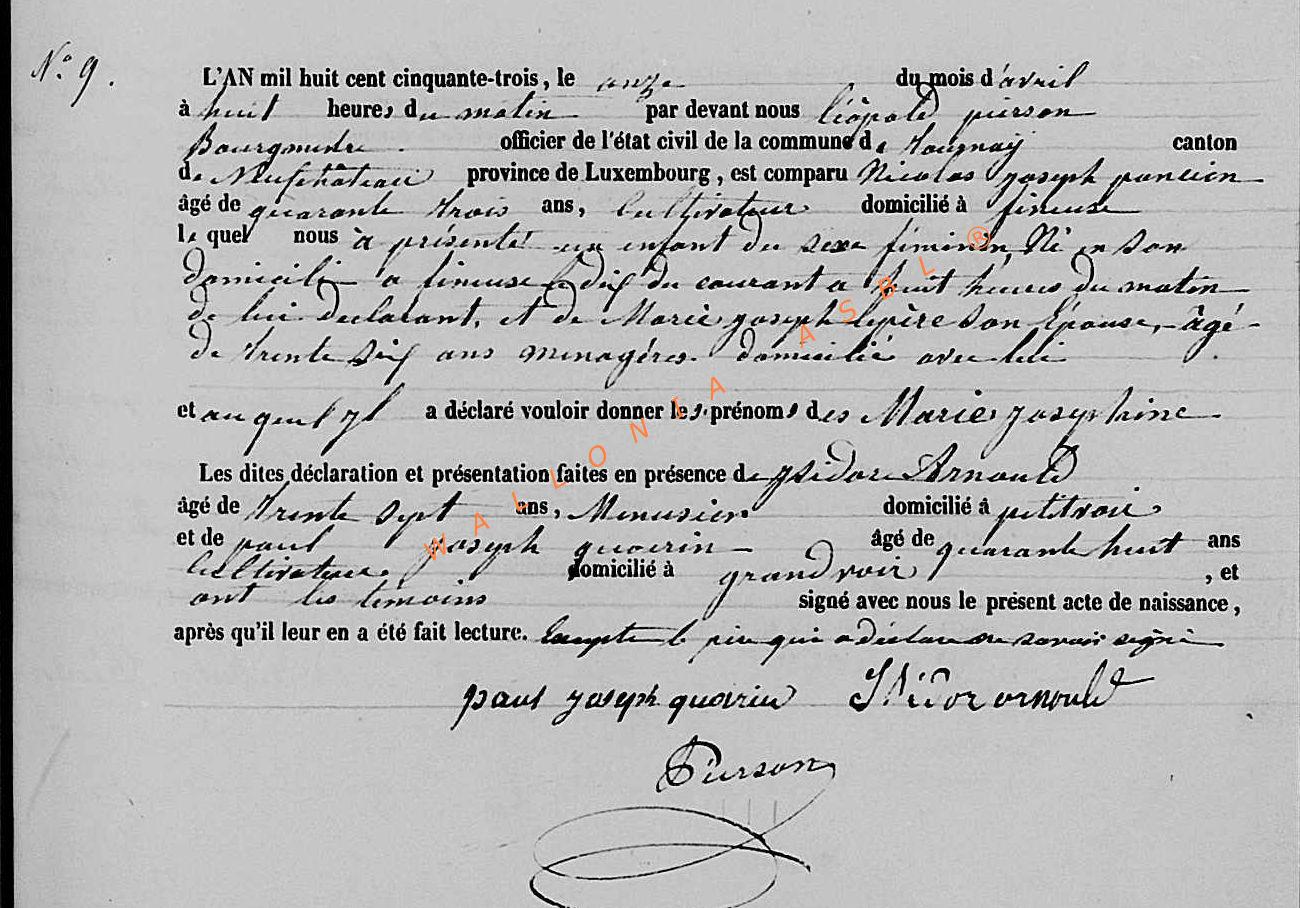 N.° 9.
L'AN mil huit cent cinquante-trois, le onze du mois d'avril
à huit heures du matin par devant nous léopold pierson
Bourgmestre officier de l'état civil de la commune de Tournay canton
de Neufchâteau province de Luxembourg, est comparu Nicolas joseph poncin
âgé de quarante trois ans, Cultivateur domicilié à fineuse
le quel nous à présenté un enfant du sexe féminin, Né en son
domicili a fineuse le dix du courant a huit heures du matin
de lui declarant, et de Marie joseph lepère son Epouse, âgé
de trente six ans menagères domicilié avec lui
et auquel a déclaré vouloir donner les prénoms des Marie josephine
Les dites déclaration et présentation faites en présence de isidore Arnould
âgé de trente sept ans, Menusier domicilié à petitvoir
et de paul joseph quoirin âgé de quarante huit ans
Cultivateur domicilié à grandvoir, et
ont les temoins signé avec nous le présent acte de naissance,
après qu'il leur en a été fait lecture. Excepter le père qui a déclaré ne savoir signé
paul joseph quoirin Isidor arnould
Pierson
WALLONIA ASBL ®